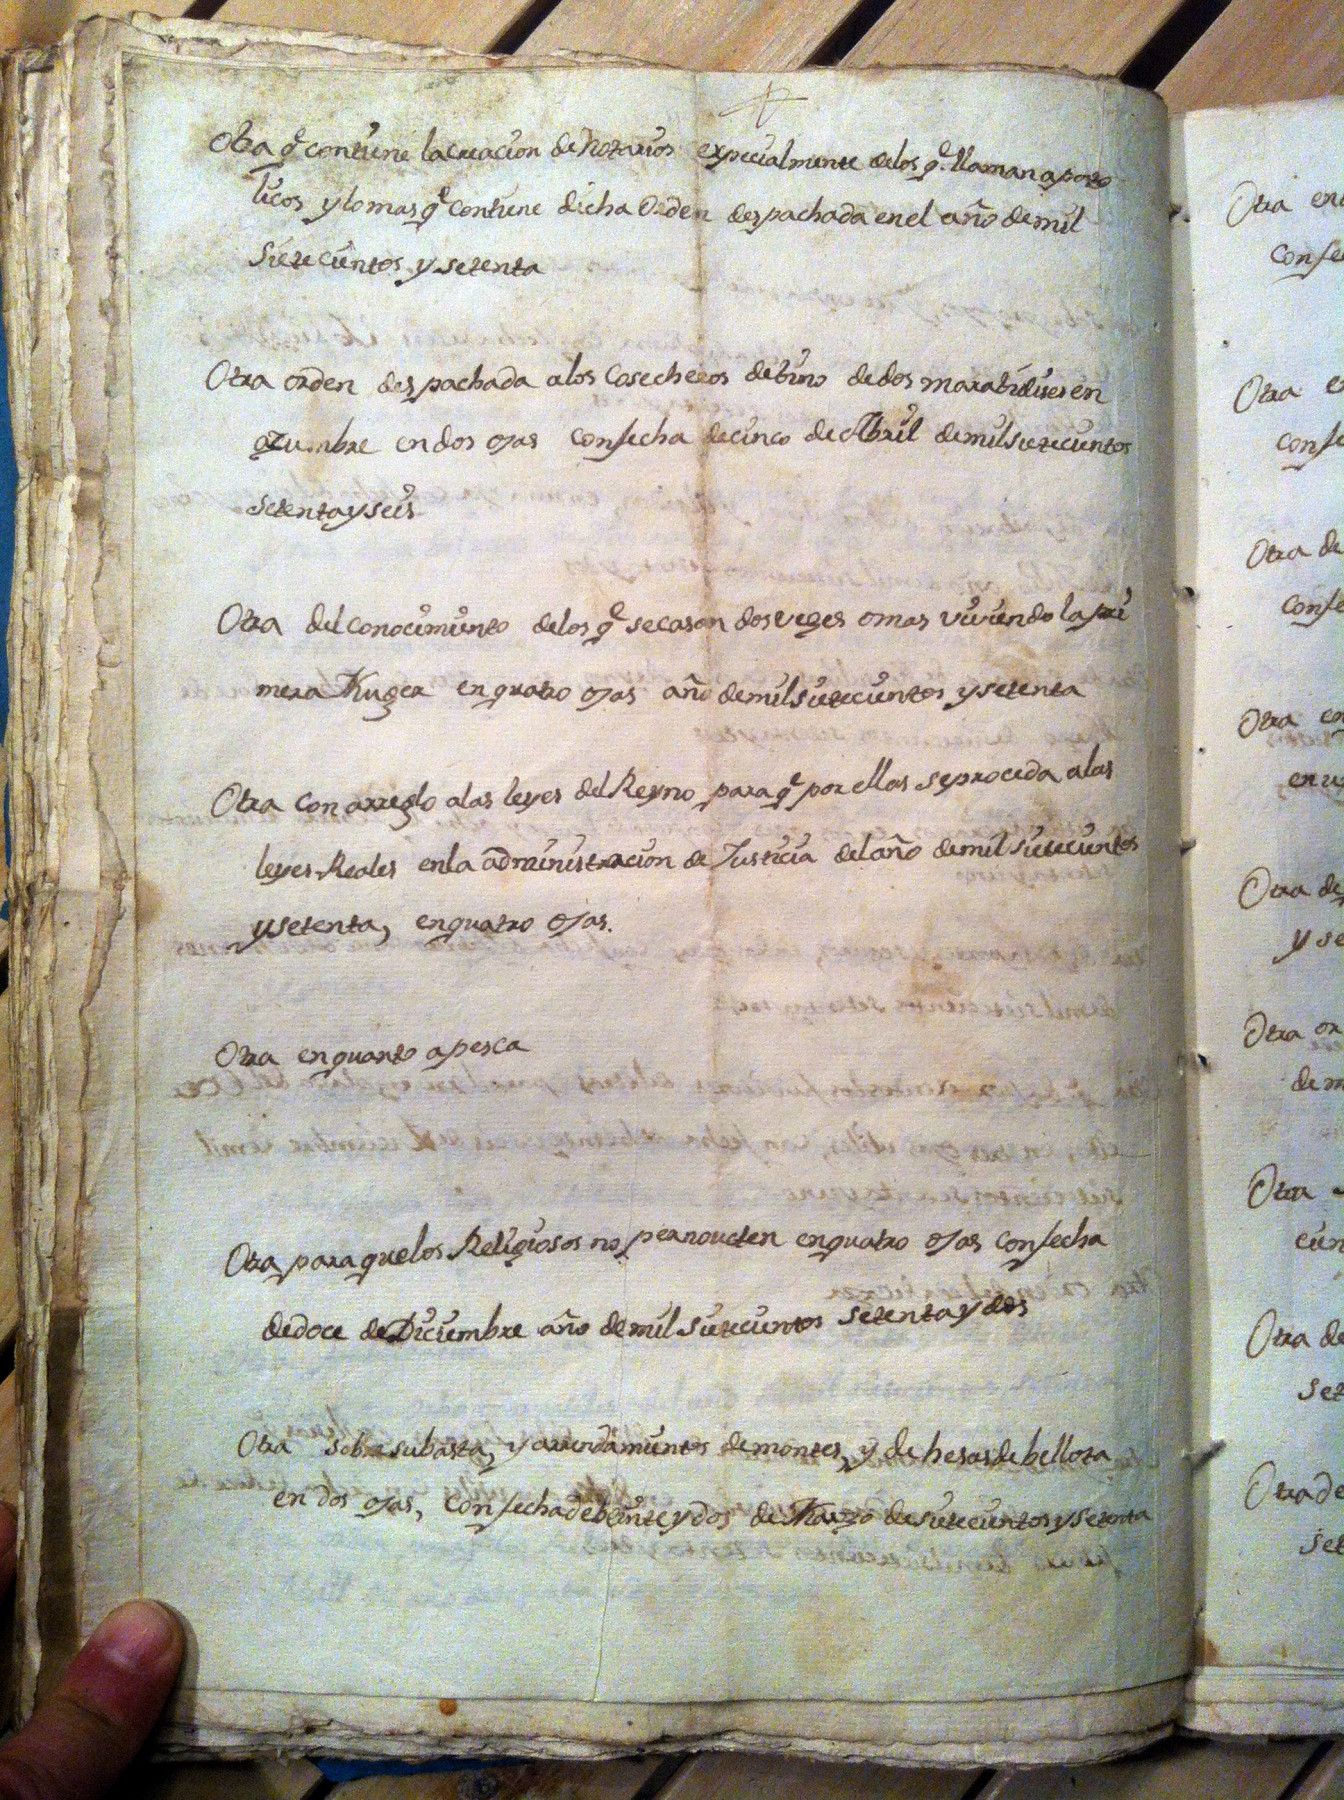 Otra q.e contiene la creacion de Notarios expecialmente delos q.e llaman aposto
licos y lo mas q.e contiene dicha Orden despachada en el año de mil
Sietecientos y setenta
Otra orden despachada alos Cosecheros de bino de dos marabidises en
azumbre en dos ojas con fecha de cinco de Abril de mil sietecientos
setenta y seis
Otra del conocimiento delos q.e se casan dos veges o mas viviendo la pri
mera Muger en quatro ojas año de mil sietecientos y setenta
Otra con arreglo alas leyes del Reyno para q.e por ellas se proceda alas
leyes Reales en la administracion de Justicia del año de mil sietecientos
y setenta, en quatro ojas.
Otra en quanto a pesca
Otra para que los Religiosos no pernocten en quatro ojas con fecha
de doce de Diciembre año de mil sietecientos setenta y dos
Otra sobre subasta, y arrendamientos de montes, y de hesas de bellota
en dos ojas, con fecha de beinte y dos de Marzo de sietecientos y setenta
Otra en
con fe
Otra
conf
Otra de
confe
Otra en
en u
Otra de
y se
Otra or
de m
Otra
cien
Otra de
set
Otra de
set